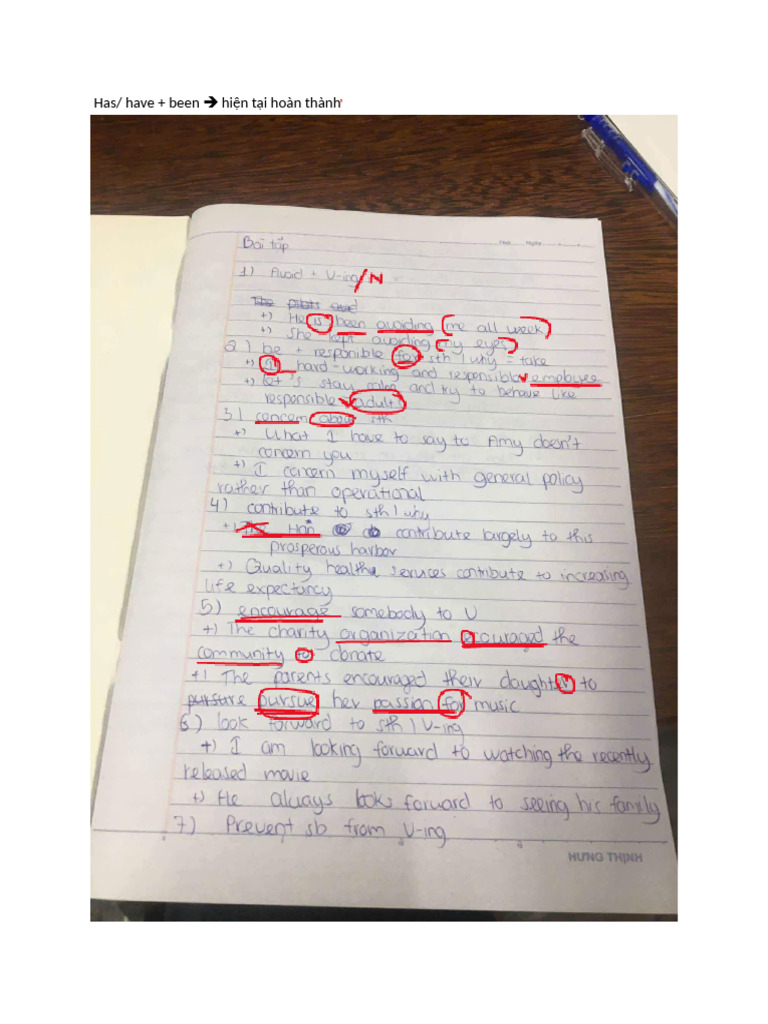 Has/ have + been ➔ hiện tại hoàn thành
Bài tập
Thứ Ngày
1) Avoid + V-ing/N
The pilots
+) He is been avoiding (me all week)
+) She kept avoiding (my eyes)
2) be + responible for sth | why = take
+) I hard-working and responsible employee
+) let's stay calm and try to behave like
responsible adults
3) concern about sth
+) What I have to say to Amy doesn't
concern you
+) I concern myself with general policy
rather than operational
4) contribute to sth | why
+) contribute largely to this
prosperous harbor
+) Quality healthe services contribute to increasing
life expectancy
5) encourage somebody to V
+) The charity organization ecouraged the
community to donate
+) The parents encouraged their to
pursure pursue her passion for music
6) look forward to sth | V-ing
+) I am looking forward to watching the recently
released movie
+) He always looks forward to seeing his family
7) Prevent sb from V-ing
HƯNG THỊNH